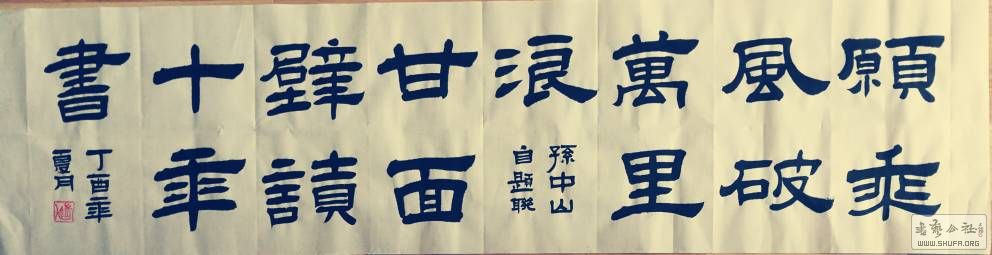 願乘
風破
萬里
浪
孫中山
自題聯
甘面
壁讀
十年
書
丁酉年
夏月
书艺公社
WWW.SHUFA.ORG